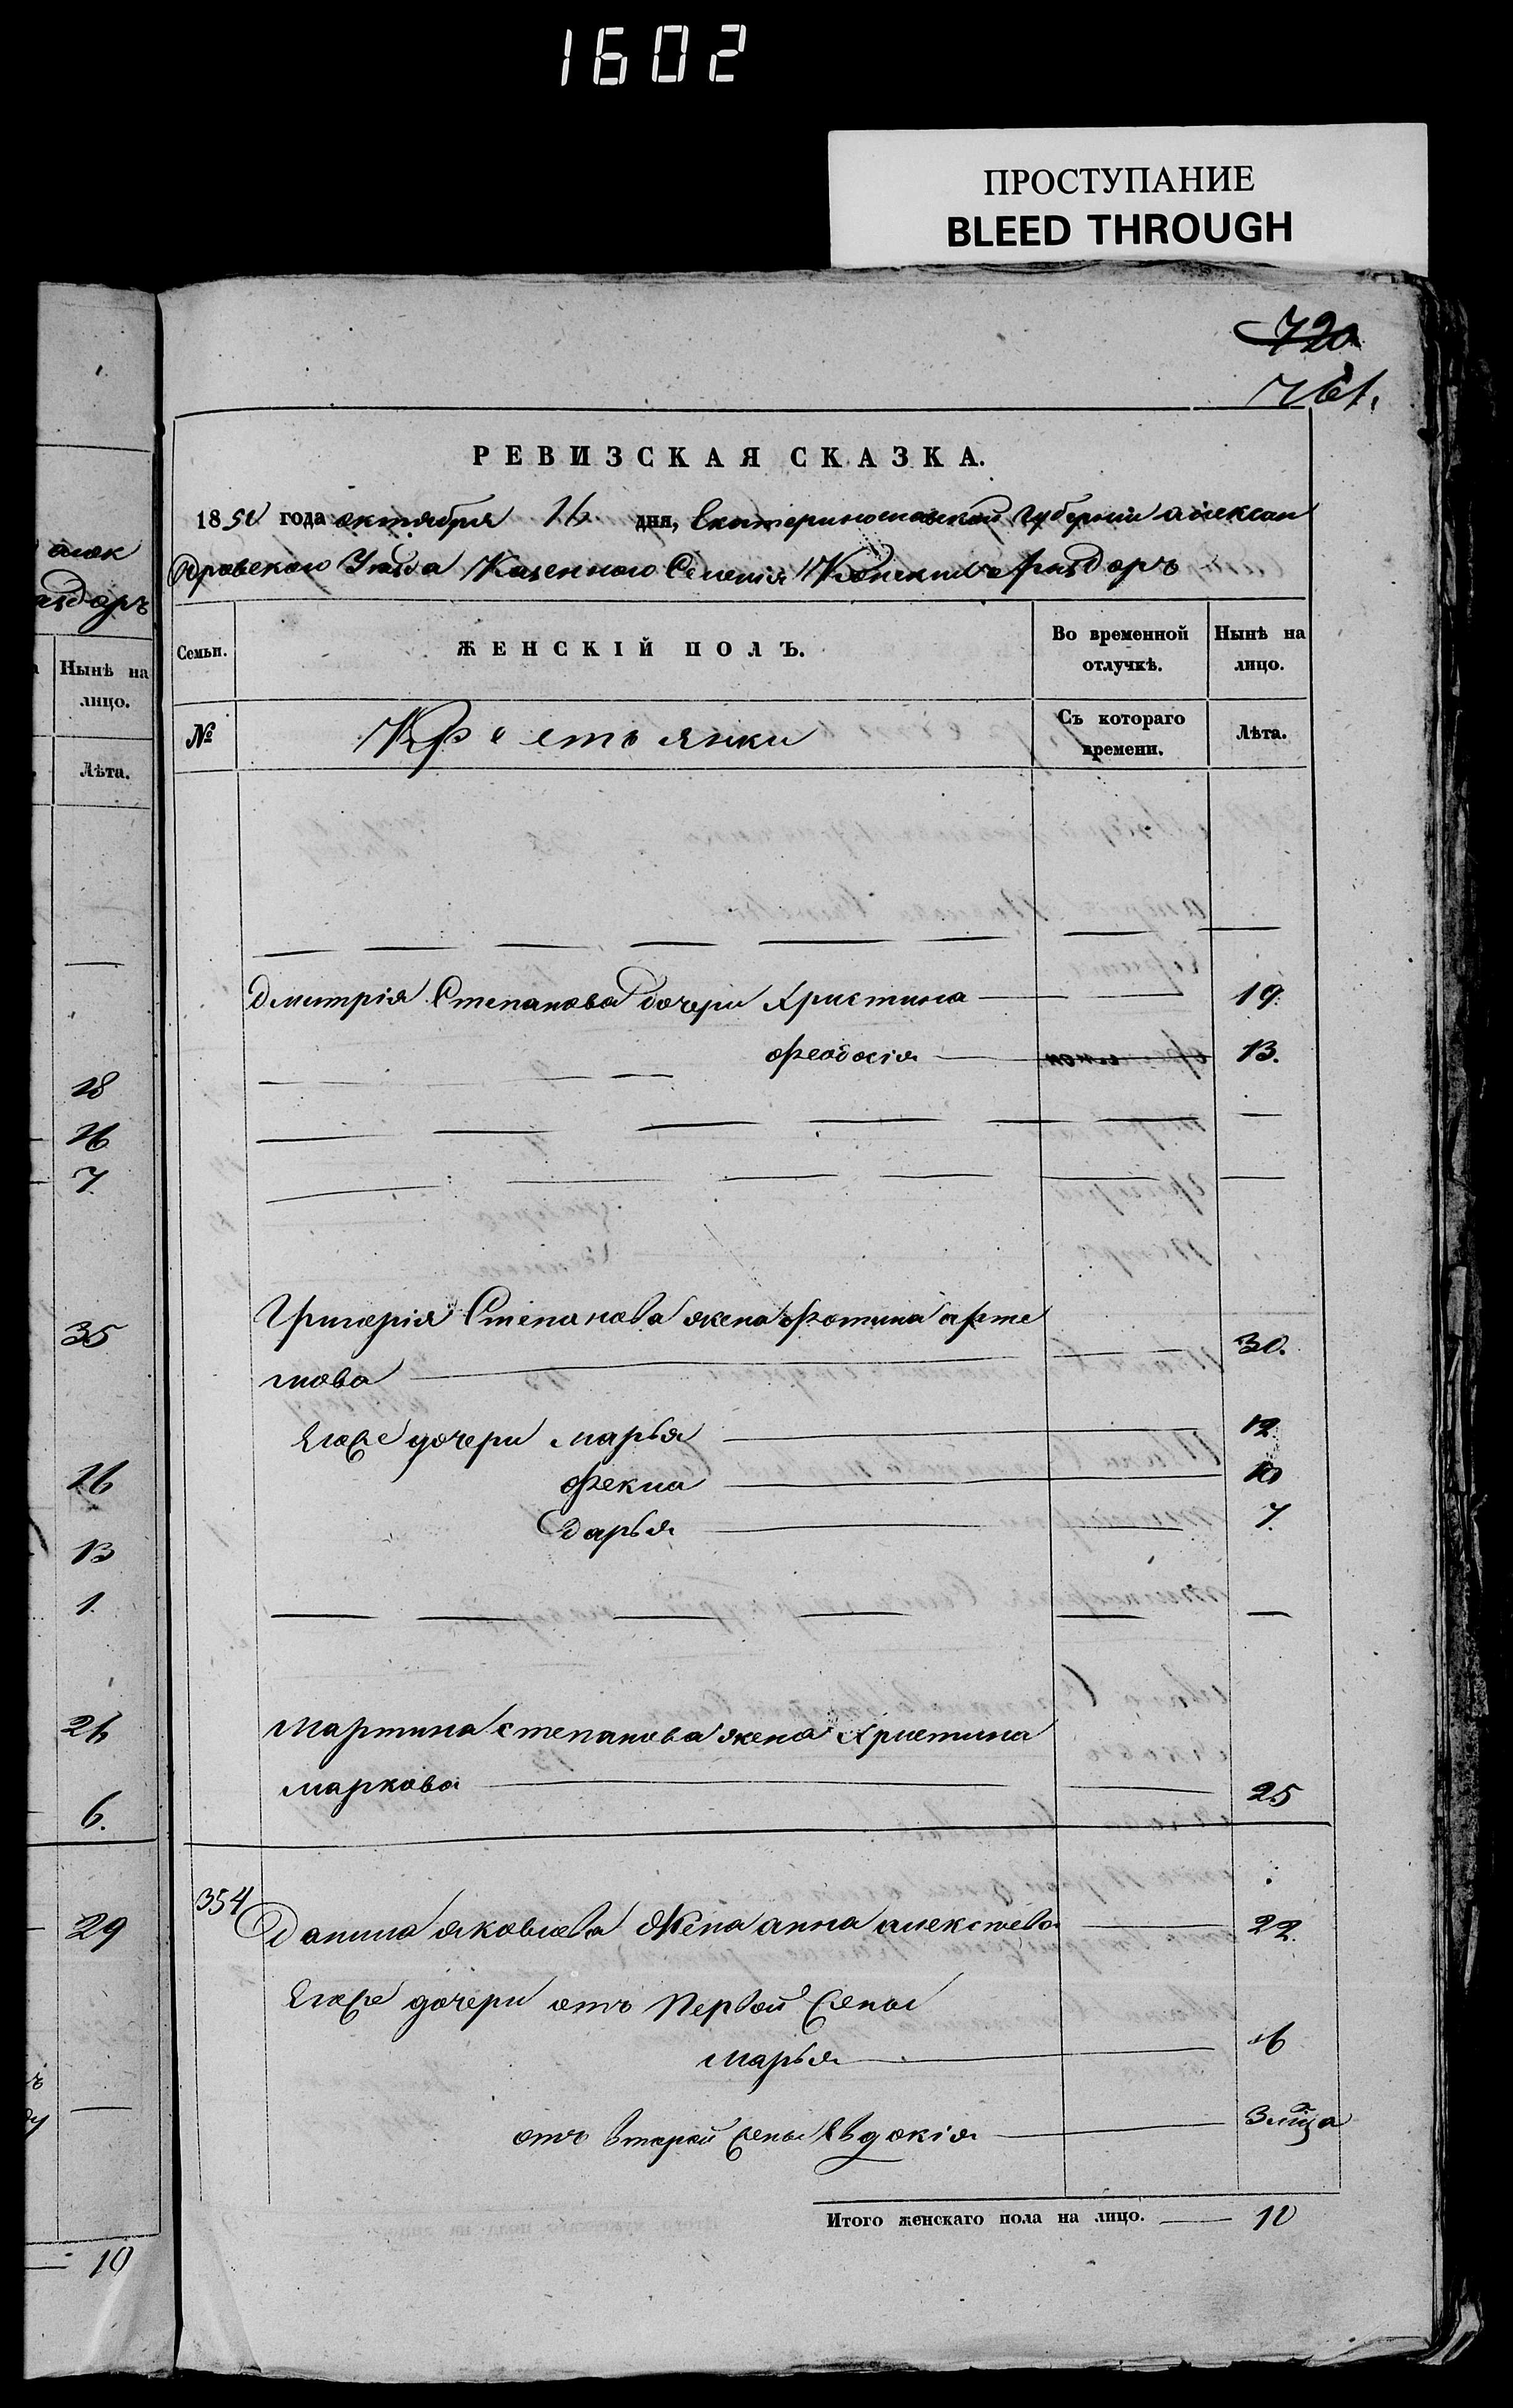 1602
ПРОСТУПАНИЕ
BLEED THROUGH
720
761.
РЕВИЗСКАЯ СКАЗКА.
1850 года октября 16 дня, Екатеринославской Губерніи Алексан
дровскаго Уезда Казенного Селенія Конскихъ раздоръ
Семьи.
ЖЕНСКІЙ ПОЛЪ.
Во временной отлучкѣ.
Нынѣ на лицо.
№
Крестьянки
Съ котораго времени.
Лѣта.
Дмитрія Степанова дочери Христина 19.
Феодосія 13.
Григорія Степанова жена Фотина арте
мова 30.
Его же дочери марья 12
Фекла 10
Дарья 7.
Мартина степанова жена Христина
маркова 25
354 Данила яковлева Жена анна алексеева 22.
Его же дочери отъ Первой жены
марья
отъ второй жены Евдокія 3 мѣца
Итого женскаго пола на лицо. 10
алек
аздоръ
Нынѣ на
лицо.
Лѣта.
18
16
7
35
26
13
1.
26
6.
29
10